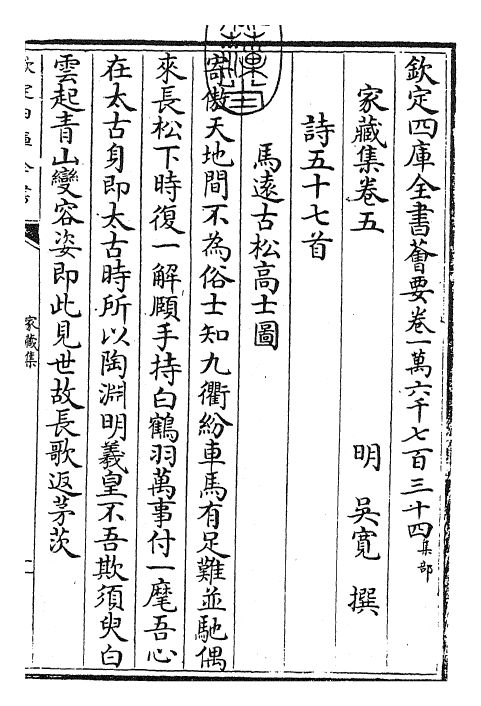 欽定四庫全書薈要卷一萬六千七百三十四集部
家藏集卷五
明 吳寛 撰
詩五十七首
馬遠古松高士圖
寄傲天地間不為俗士知九衢紛車馬有足難並馳偶
來長松下時復一解頤手持白鶴羽萬事付一麾吾心
在太古身即太古時所以陶淵明羲皇不吾欺須臾白
雲起青山變容姿即此見世故長歌返茅茨
家藏集